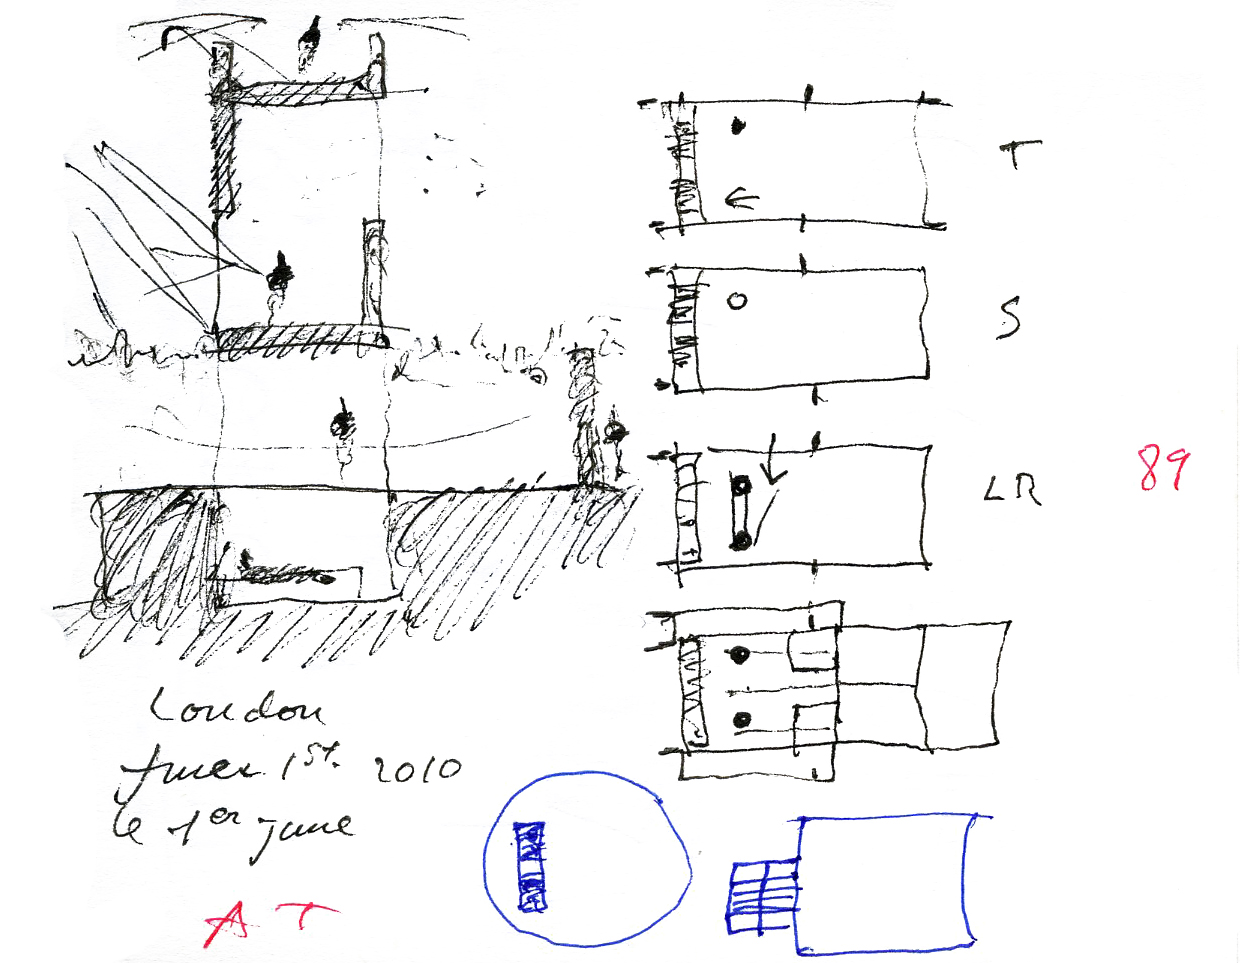 T
S
LR
89
London
June 1st. 2010
le 1er june
A T